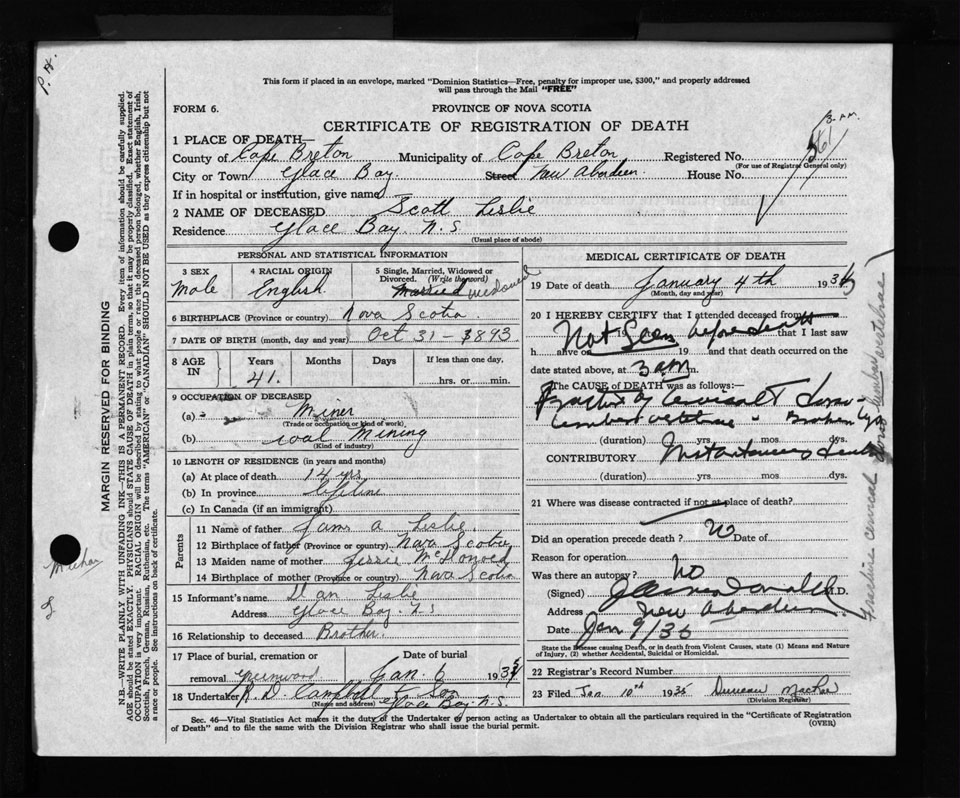 P. H.
This form if placed in an envelope, marked "Dominion Statistics—Free, penalty for improper use, $300," and properly addressed
will pass through the Mail "FREE"
FORM 6.
PROVINCE OF NOVA SCOTIA
CERTIFICATE OF REGISTRATION OF DEATH
1 PLACE OF DEATH—
County of Cape Breton Municipality of Cape Breton Registered No.
(For use of Registrar General only)
City or Town Glace Bay. Street New Aberdeen. House No.
If in hospital or institution, give name
2 NAME OF DECEASED Scott Leslie
Residence Glace Bay N.S
(Usual place of abode)
PERSONAL AND STATISTICAL INFORMATION
3 SEX
Male
4 RACIAL ORIGIN
English
5 Single, Married, Widowed or
Divorced. (Write the word)
Married widowed
6 BIRTHPLACE (Province or country) Nova Scotia.
7 DATE OF BIRTH (month, day and year) Oct 31 - 1893
8 AGE IN
Years
41.
Months
Days
If less than one day,
hrs. or min.
9 OCCUPATION OF DECEASED
(a) Miner
(Trade or occupation or kind of work)
(b) Coal Mining
(Kind of industry)
10 LENGTH OF RESIDENCE (in years and months)
(a) At place of death 14 yrs.
(b) In province lifetime
(c) In Canada (if an immigrant)
Parents
11 Name of father James A Leslie.
12 Birthplace of father (Province or country) Nova Scotia
13 Maiden name of mother Jessie McDonald
14 Birthplace of mother (Province or country) Nova Scotia
15 Informant's name Dan Leslie
Address Glace Bay. N.S
16 Relationship to deceased Brother.
17 Place of burial, cremation or
removal Greenwood
Date of burial
Jan. 6 1935
18 Undertaker R. D. Campbell & Son
(Name and address) Glace Bay. N.S.
MEDICAL CERTIFICATE OF DEATH
19 Date of death January 4th 1935
(Month, day and year)
20 I HEREBY CERTIFY that I attended deceased from
Not Seen before death
19 that I last saw
h alive on 19 and that death occurred on the
date stated above, at 3 am m.
The CAUSE of DEATH was as follows:—
Fracture of cervical &
lumbar vertebrae - Broken legs
(duration) yrs. mos. dys.
CONTRIBUTORY Instantaneous death
(duration) yrs. mos. dys.
21 Where was disease contracted if not at place of death?
Did an operation precede death ? No Date of
Reason for operation
Was there an autopsy? No
(Signed) M.D.
Address New Aberdeen
Date Jan 9/35
State the Disease causing Death, or in death from Violent Causes, state (1) Means and Nature
of Injury, (2) whether Accidental, Suicidal or Homicidal.
22 Registrar's Record Number
23 Filed Jan 10th 1935 Duncan MacRae
(Division Registrar)
Sec. 46—Vital Statistics Act makes it the duty of the Undertaker or person acting as Undertaker to obtain all the particulars required in the "Certificate of Registration
of Death" and to file the same with the Division Registrar who shall issue the burial permit.
(OVER)
MARGIN RESERVED FOR BINDING
N.B.—WRITE PLAINLY WITH UNFADING INK—THIS IS A PERMANENT RECORD. Every item of information should be carefully supplied.
AGE should be stated EXACTLY. PHYSICIANS should STATE CAUSE OF DEATH in plain terms, so that it may be properly classified. Exact statement of
OCCUPATION is very important. RACIAL ORIGIN will be described by stating to what people or race the deceased person belonged, whether English, Irish,
Scottish, French, German, Russian, Ruthenian, etc. The terms "AMERICAN" or "CANADIAN" SHOULD NOT BE USED as they express citizenship but not
a race or people. See instructions on back of certificate.
Fracture cervical dorso lumbar vertebrae